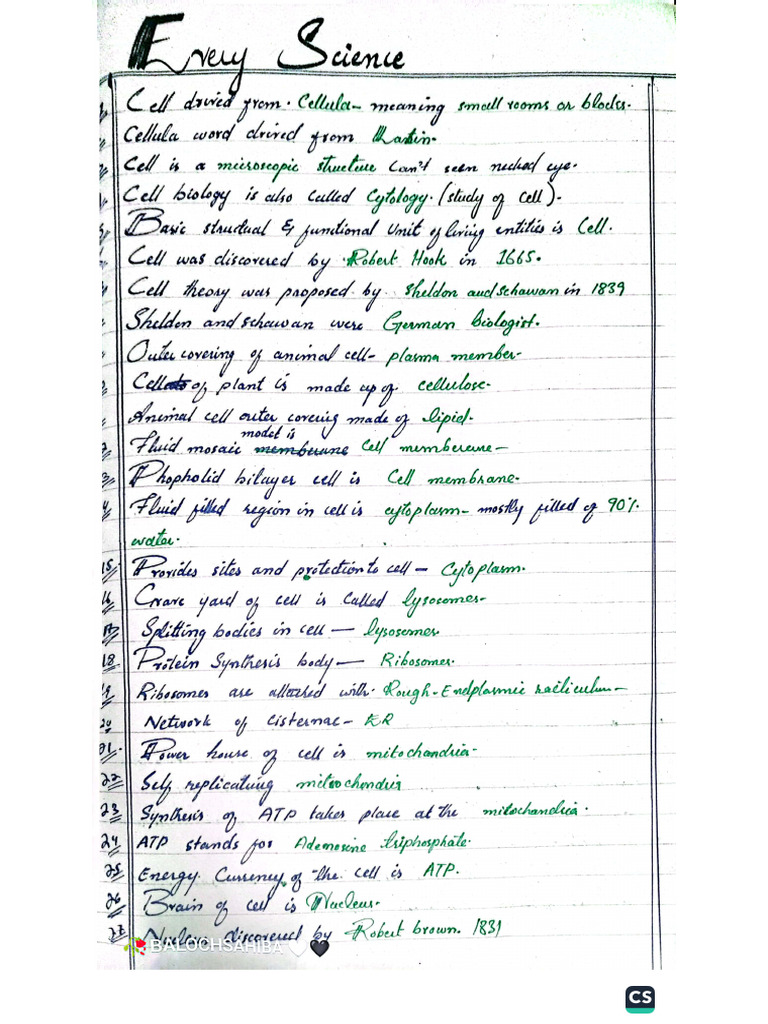 Every Science
Cell drived from. Cellula- meaning small rooms or blocks.
Cellula word drived from Latin.
Cell is a microscopic structure Can't seen necked eye.
Cell biology is also called Cytology. (study of cell).
Basic structual & functional Unit of living entities is Cell.
Cell was discovered by Robert Hook in 1665.
Cell theory was proposed by Sheldon and schawan in 1839
Sheldon and schawan were German biologist.
Outer covering of animal cell- plasma member-
Cell of plant is made up of cellulose-
Animal cell outer covering made of lipid.
model is
Fluid mosaic membrune Cell membereune-
13 Phopholid bilayer cell is Cell membrane.
14 Fluid filled region in cell is cytoplasm- mostly filled of 90%
water.
15 Provides sites and protection to cell - Cytoplasm.
16 Grave yard of cell is Called lysosomes-
17 Splitting bodies in cell - lysosomes
18 Protein Synthesis body- Ribosomes.
19 Ribosomes are attached with. Rough-Endplasmic raeliculum-
20 Network of Cisternae- ER
21. Power house of cell is mitochandria-
22 Self replicatuing mitochondria
23 Synthesis of ATP takes place at the mitochandria.
24 ATP stands for Ademosine triphosphate.
25 Energy Currency of the cell is ATP.
26 Brain of cell is Nucleus.
Nucleus discovered by Robert brown. 1831
BALOCHSAHIBA
CS